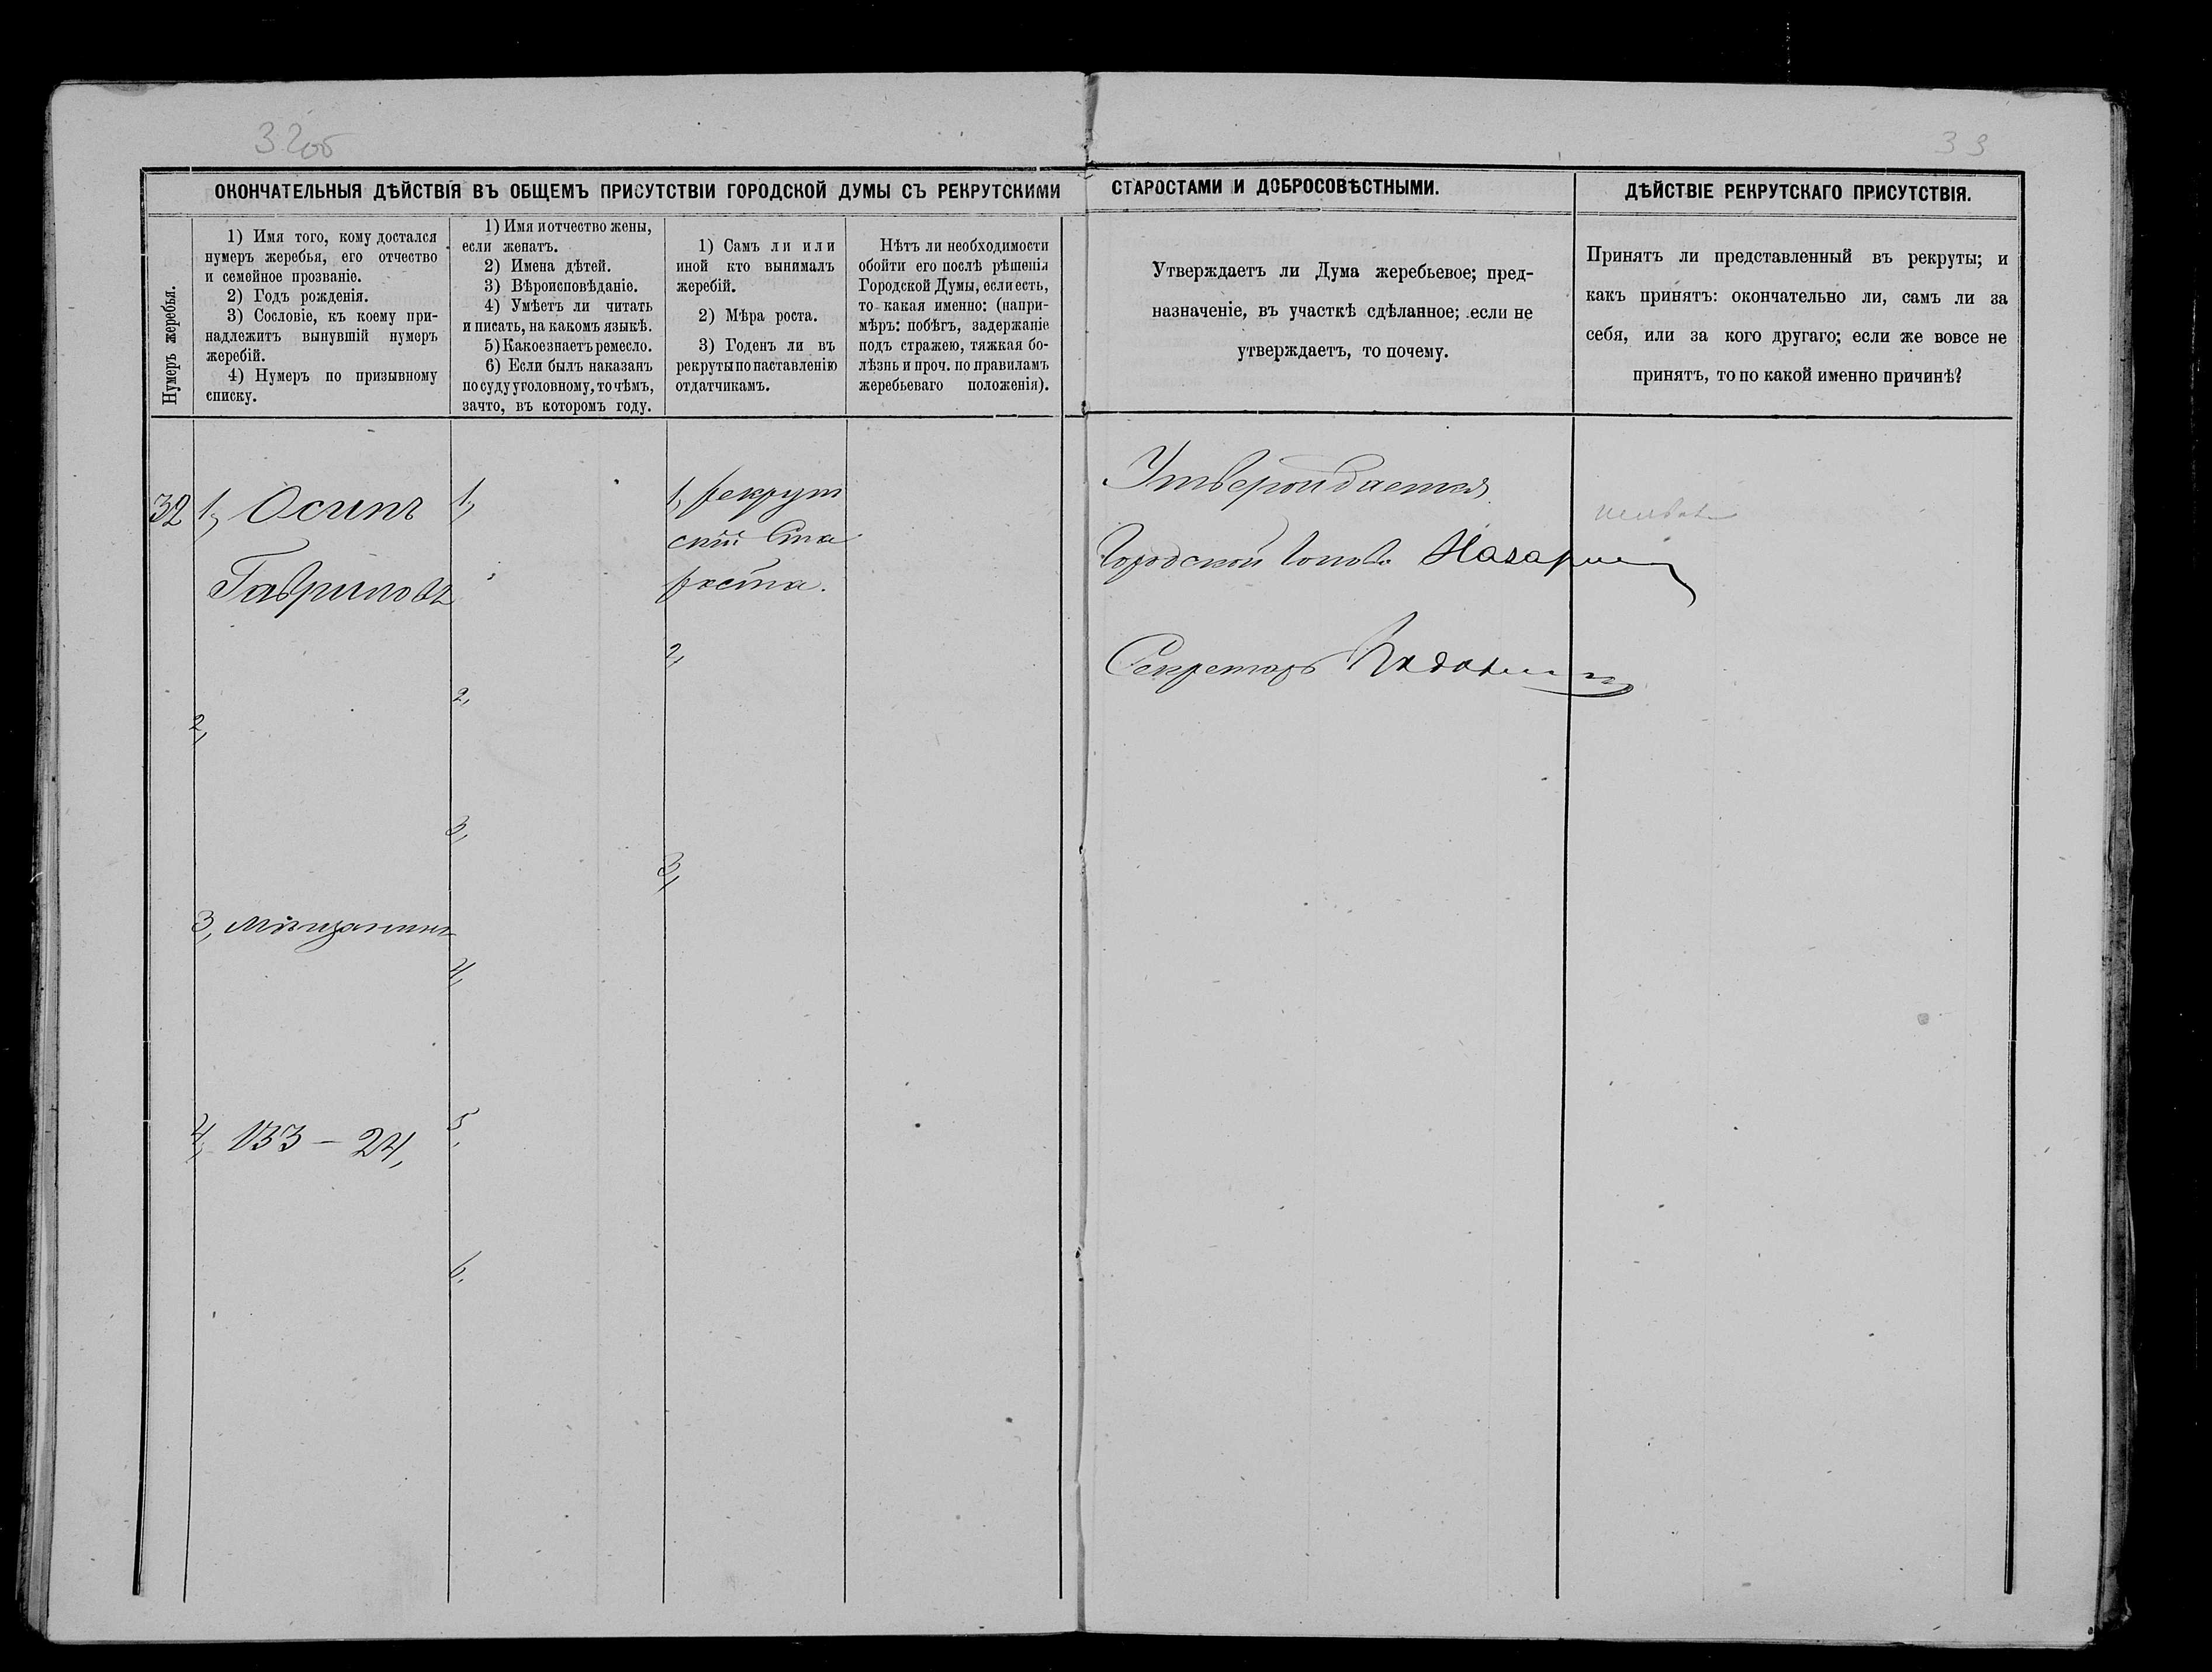 32об
33
ОКОНЧАТЕЛЬНЫЯ ДѢЙСТВІЯ ВЪ ОБЩЕМЪ ПРИСУТСТВІИ ГОРОДСКОЙ ДУМЫ СЪ РЕКРУТСКИМИ СТАРОСТАМИ И ДОБРОСОВѢСТНЫМИ.
ДѢЙСТВІЕ РЕКРУТСКАГО ПРИСУТСТВІЯ.
Нумеръ жеребья.
1) Имя того, кому достался
нумеръ жеребья, его отчество
и семейное прозваніе.
2) Годъ рожденія.
3) Сословіе, къ коему при-
надлежитъ вынувшій нумеръ
жеребій.
4) Нумеръ по призывному
списку.
1) Имя и отчество жены,
если женатъ.
2) Имена дѣтей.
3) Вѣроисповѣданіе.
4) Умѣетъ ли читать
и писать, на какомъ языкѣ.
5) Какое знаетъ ремесло.
6) Если былъ наказанъ
по суду уголовному, то чѣмъ,
за что, въ которомъ году.
1) Самъ ли или
иной кто вынималъ
жеребій.
2) Мѣра роста.
3) Годенъ ли въ
рекруты по наставленію
отдатчикамъ.
Нѣтъ ли необходимости
обойти его послѣ рѣшенія
Городской Думы, если есть,
то какая именно: (напри-
мѣръ: побѣгъ, задержаніе
подъ стражею, тяжкая бо-
лѣзнь и проч. по правиламъ
жеребьеваго положенія).
Утверждаетъ ли Дума жеребьевое; пред-
назначеніе, въ участкѣ сдѣланное; если не
утверждаетъ, то почему.
Принятъ ли представленный въ рекруты; и
какъ принятъ: окончательно ли, самъ ли за
себя, или за кого другаго; если же вовсе не
принятъ, то по какой именно причинѣ?
32
1, Осипъ
Гавриловъ
2,
3, Мѣщанинъ
4, 133 – 24,
1,
2,
3,
4,
5,
6,
1, рекрут
скій Ста
роста.
2,
3,
Утверждается
Городской Голова
Секретарь